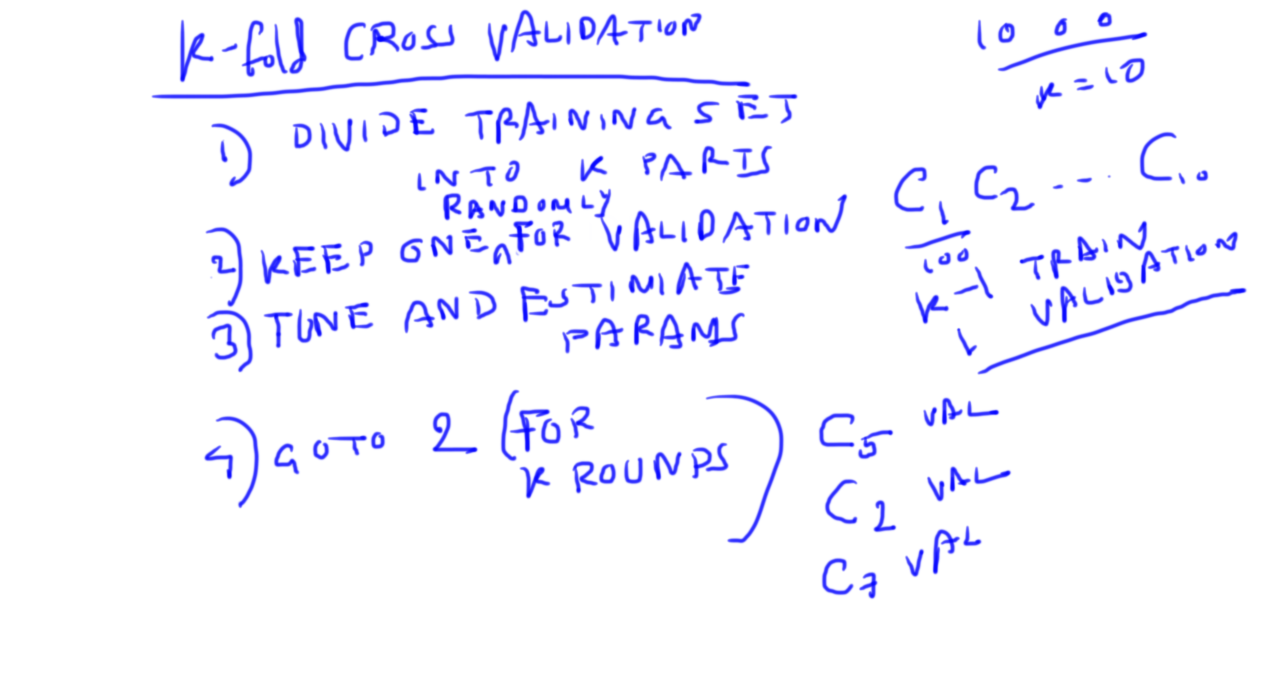 K-fold CROSS VALIDATION
1) DIVIDE TRAINING SET
INTO K PARTS
RANDOMLY
2) KEEP ONE ^ FOR VALIDATION
3) TUNE AND ESTIMATE
PARAMS
4) GOTO 2 (FOR
K ROUNDS)
1000
K=10
C1 C2 ... C10
100
K-1 TRAIN
1 VALIDATION
C5 VAL
C2 VAL
C7 VAL